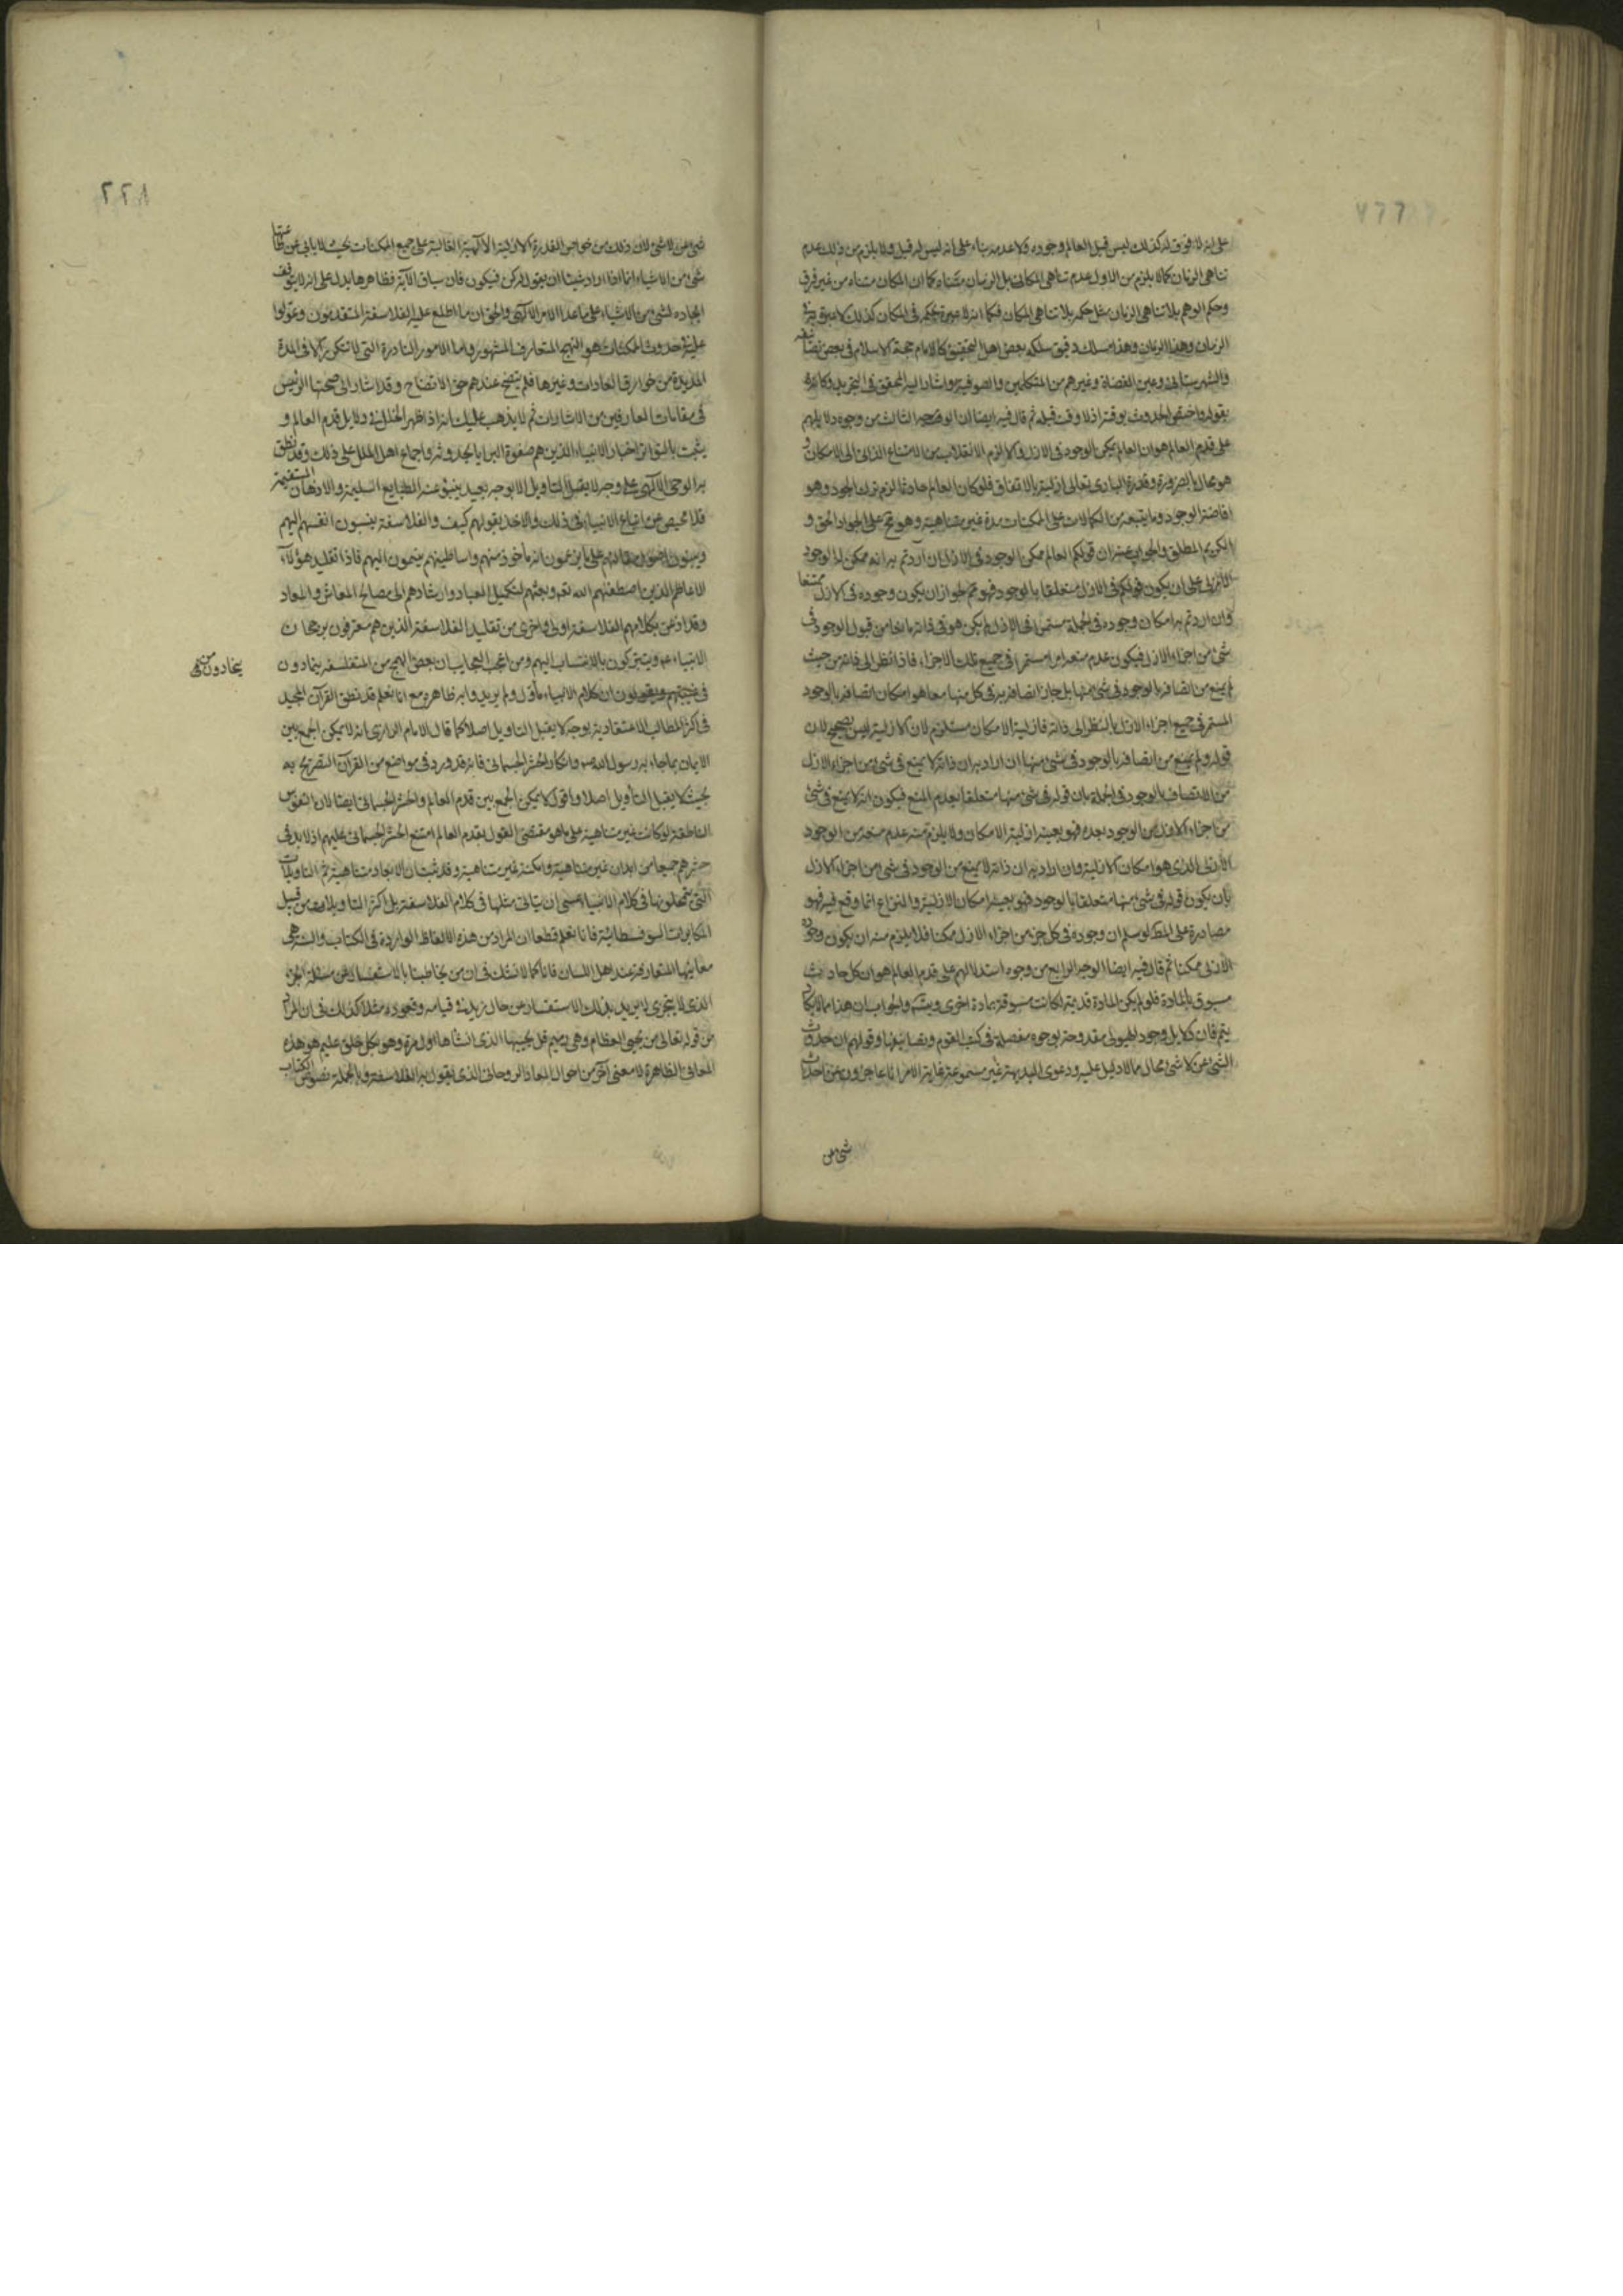 على انه لا فوق له كذلك ليس قبل العالم وجوده ولا عدمه بناء على انه ليس له قبل ولا يلزم من ذلك عدم
تناهى الزمان كما لا يلزم من الاول عدم تناهى المكان بل الزمان متناه كما ان المكان متناه من غير فرق
وحكم الوهم بلا تناهى الزمان مثل حكمه بلا تناهى المكان فكما انه لا عبرة بحكمه فى المكان كذلك لا عبرة به فى
الزمان وهذا مسلك دقيق سلكه بعض اهل التحقيق كالامام حجة الاسلام فى بعض تصانيفه
والشهرستانى وعين القضاة وغيرهم من المتكلمين والصوفية واشار اليه المحقق فى التجريد وكانه
بقوله واختص الحدوث بوقته اذ لا وقت قبله ثم قال فيه ايضا ان الوجه الثالث من وجوه دلايلهم
على قدم العالم هو ان العالم ممكن الوجود فى الازل والا لزم الانقلاب من الامتناع الذاتى الى الامكان و
هو محال بالضرورة وقدرة البارى تعالى ازلية بالاتفاق فلو كان العالم حادثا لزم ترك الجود وهو
افاضة الوجود وما يتبعه من الكمالات على الممكنات مدة غير متناهية وهو مح على الجواد الحق و
الكريم المطلق والجواب عنه ان قولكم العالم ممكن الوجود فى الازل ان اردتم به انه ممكن له الوجود
الازلى على ان يكون قولكم فى الازل متعلقا بالوجود فهو مم لجواز ان يكون وجوده فى الازل ممتنعا
وان اردتم به امكان وجوده فى الجملة مستمر فى الازل لم يكن هو فى ذاته مانعا من قبول الوجود فى
شئ من اجزاء الازل فيكون عدم منعه امرا مستمرا فى جميع تلك الاجزاء فاذا نظر الى ذاته من حيث
لم يمنع من اتصافه بالوجود فى شئ منها بل جاز اتصافه به فى كل منها معا هو امكان اتصافه بالوجود
المستمر فى جميع اجزاء الازل بالنظر الى ذاته فازلية الامكان مستلزم لامكان الازلية ليس بصحيح لان
قوله ولم يمنع من اتصافه بالوجود فى شئ منها ان اراد به ان ذاته لا يمنع فى شئ من اجزاء الازل
من الاتصاف بالوجود فى الجملة بان قوله فى شئ منها متعلقا بعدم المنع فيكون انه لا يمنع فى شئ
من اجزاء الازل من الوجود بعده فهو بعينه ازلية الامكان ولا يلزم منه عدم منعه من الوجود
الازلى الذى هو امكان الازلية وان اراد به ان ذاته لا يمنع من الوجود فى شئ من اجزاء الازل
بان يكون قوله فى شئ منها متعلقا بالوجود فهو بعينه امكان الازلية والنزاع انما وقع فيه فهو
مصادرة على المط لو سلم ان وجوده فى كل جزء من اجزاء الازل ممكنا فلا يلزم منه ان يكون وجوده
الازلى ممكنا ثم قال فيه ايضا الوجه الرابع من وجوه استدلالهم على قدم العالم هو ان كل حادث
مسبوق بالمادة فلو لم يكن المادة قديمة لكانت مسبوقة بمادة اخرى ويتس والجواب ان هذا
يتم فان دلايل وجود الهيولى مقدوحة بوجوه مفصلة فى كتب القوم وتصانيفها وقولهم ان حدوث
الشئ عن لا شئ محال مما لا دليل عليه ودعوى البديهة غير مسموعة غاية الامر انا عاجزون عن احداث
شئ من
٢٢٨
شئ عن لا شئ لان ذلك من خواص القدرة الازلية الالهية الغالبة على جميع الممكنات بحيث لا يابى عن طاعتها
شئ من الاشياء انما اذا اراد شيئا ان يقول له كن فيكون فان سياق الآية فظاهرها يدل على انه لا يتوقف
ايجاده لشئ من الاشياء على ما عدا الامر الآلهى والحق ان ما اطلع عليه الفلاسفة المتقدمون وعولوا
عليه فى حدوث الممكنات هو النهج المتعارف المشهور واما الامور النادرة التى لا تتكرر الا فى المدة
المديدة من خوارق العادات وغيرها فلم يتضح عندهم حق الاتضاح وقد اشار الى صحتها الرئيس
فى مقامات العارفين من الاشارات ثم لا يذهب عليك انه اذا ظهر الخلل فى دلايل قدم العالم و
يثبت بالتواتر اخبار الانبياء الذين هم صفوة البرايا بحدوثه واجماع اهل الملل على ذلك وقد نطق
به الوحى الآلهى على وجه لا يقبل التاويل الا بوجه بعيد ينبو عنه الطبايع السليمة والاذهان المستقيمة
فلا محيص عن اتباع الانبياء فى ذلك والاخذ بقولهم كيف والفلاسفة ينسبون انفسهم اليهم
وينسبون اصول مقالاتهم على ما يزعمون انه مأخوذ منهم واساطينهم ينتمون اليهم فاذا تقليد هؤلاء
الاعاظم الذين اصطفاهم الله تعه وبعثهم لتكميل العباد وارشادهم الى مصالح المعاش والمعاد
وقد اذعن بكلامهم الفلاسفة اولى واحرى من تقليد الفلاسفة الذين هم معترفون برجحان
الانبياء عم ويتبركون بالانتساب اليهم ومن اعجب العجايب ان بعض الهمج من المتفلسفة يتمادون
يتمادون
فى غيهم ويقولون ان كلام الانبياء مأول ولم يريدوا به ظاهره مع انا نعلم قد نطق القرآن المجيد
فى اكثر المطالب الاعتقادية بوجه لا يقبل التاويل اصلا كما قال الامام الرازى انه لا يمكن الجمع بين
الايمان بما جاء به رسول الله ص وانكار الحشر الجسمانى فانه قد ورد فى مواضع من القرآن التصريح به
بحيث لا يقبل التأويل اصلا واقول لا يمكن الجمع بين قدم العالم والحشر الجسمانى ايضا لان النفوس
الناطقة لو كانت غير متناهية على ما هو مقتضى القول بقدم العالم امتنع الحشر الجسمانى عليهم اذ لا بد فى
حشرهم جميعا من ابدان غير متناهية وامكنة غير متناهية وقد ثبت ان الابعاد متناهية ثم التاويلات
التى يتمحلونها فى كلام الانبياء عسى ان يتاتى مثلها فى كلام الفلاسفة بل اكثر التاويلات من قبيل
المكابرات السوفسطائية فانا نعلم قطعا ان المراد من هذه الالفاظ الواردة فى الكتاب والسنة هى
معانيها المتعارفة عند اهل اللسان فانا كما لا نشك فى ان من يخاطبنا بالاستفسار عن مسئلة الجزء
الذى لا يتجزى لا يريد بذلك الاستفسار من حال زيد فى قيامه وقعوده مثلا كذلك فى ان المراد
من قوله تعالى من يحيى العظام وهى رميم قل يحييها الذى انشأها اول مرة وهو بكل خلق عليم هو هذه
المعانى الظاهرة لا معنى آخر من احوال المعاد الروحانى الذى يقول به الفلاسفة وبالجملة نصوص الكتاب